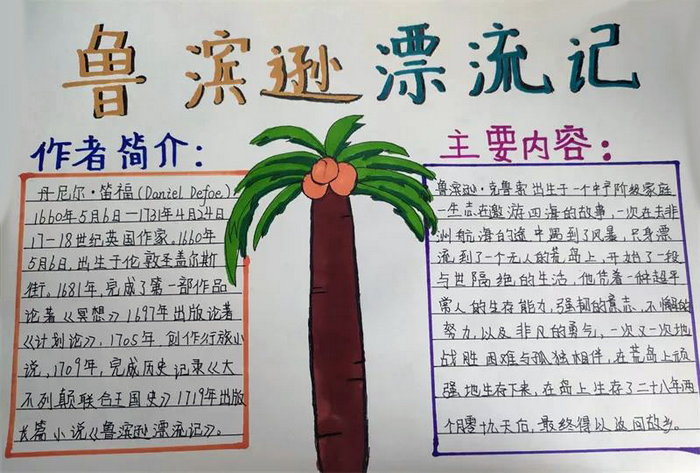 鲁滨逊漂流记
作者简介：
丹尼尔·笛福(Daniel Defoe)
1660年5月6日—1731年4月24日
17-18世纪英国作家。1660年
5月6日,出生于伦敦圣盖尔斯
街。1681年,完成了第一部作品
论著《冥想》1697年出版论著
《计划论》,1705年,创作行旅小
说,1709年,完成历史记录《大
不列颠联合王国史》1719年出版
长篇小说《鲁滨逊漂流记》。
主要内容：
鲁滨逊·克鲁索出生于一个中产阶级家庭
一生志在遨游四海的故事,一次在去非
洲航海的途中遇到了风暴,只身漂
流到了一个无人的荒岛上,开始了一段
与世隔绝的生活。他凭着一种超乎
常人的生存能力,强韧的意志,不懈的
努力,以及非凡的勇气,一次又一次地
战胜困难与孤独相伴,在荒岛上顽
强地生存下来,在岛上生存了二十八年两
个月零十九天后,最终得以返回故乡。